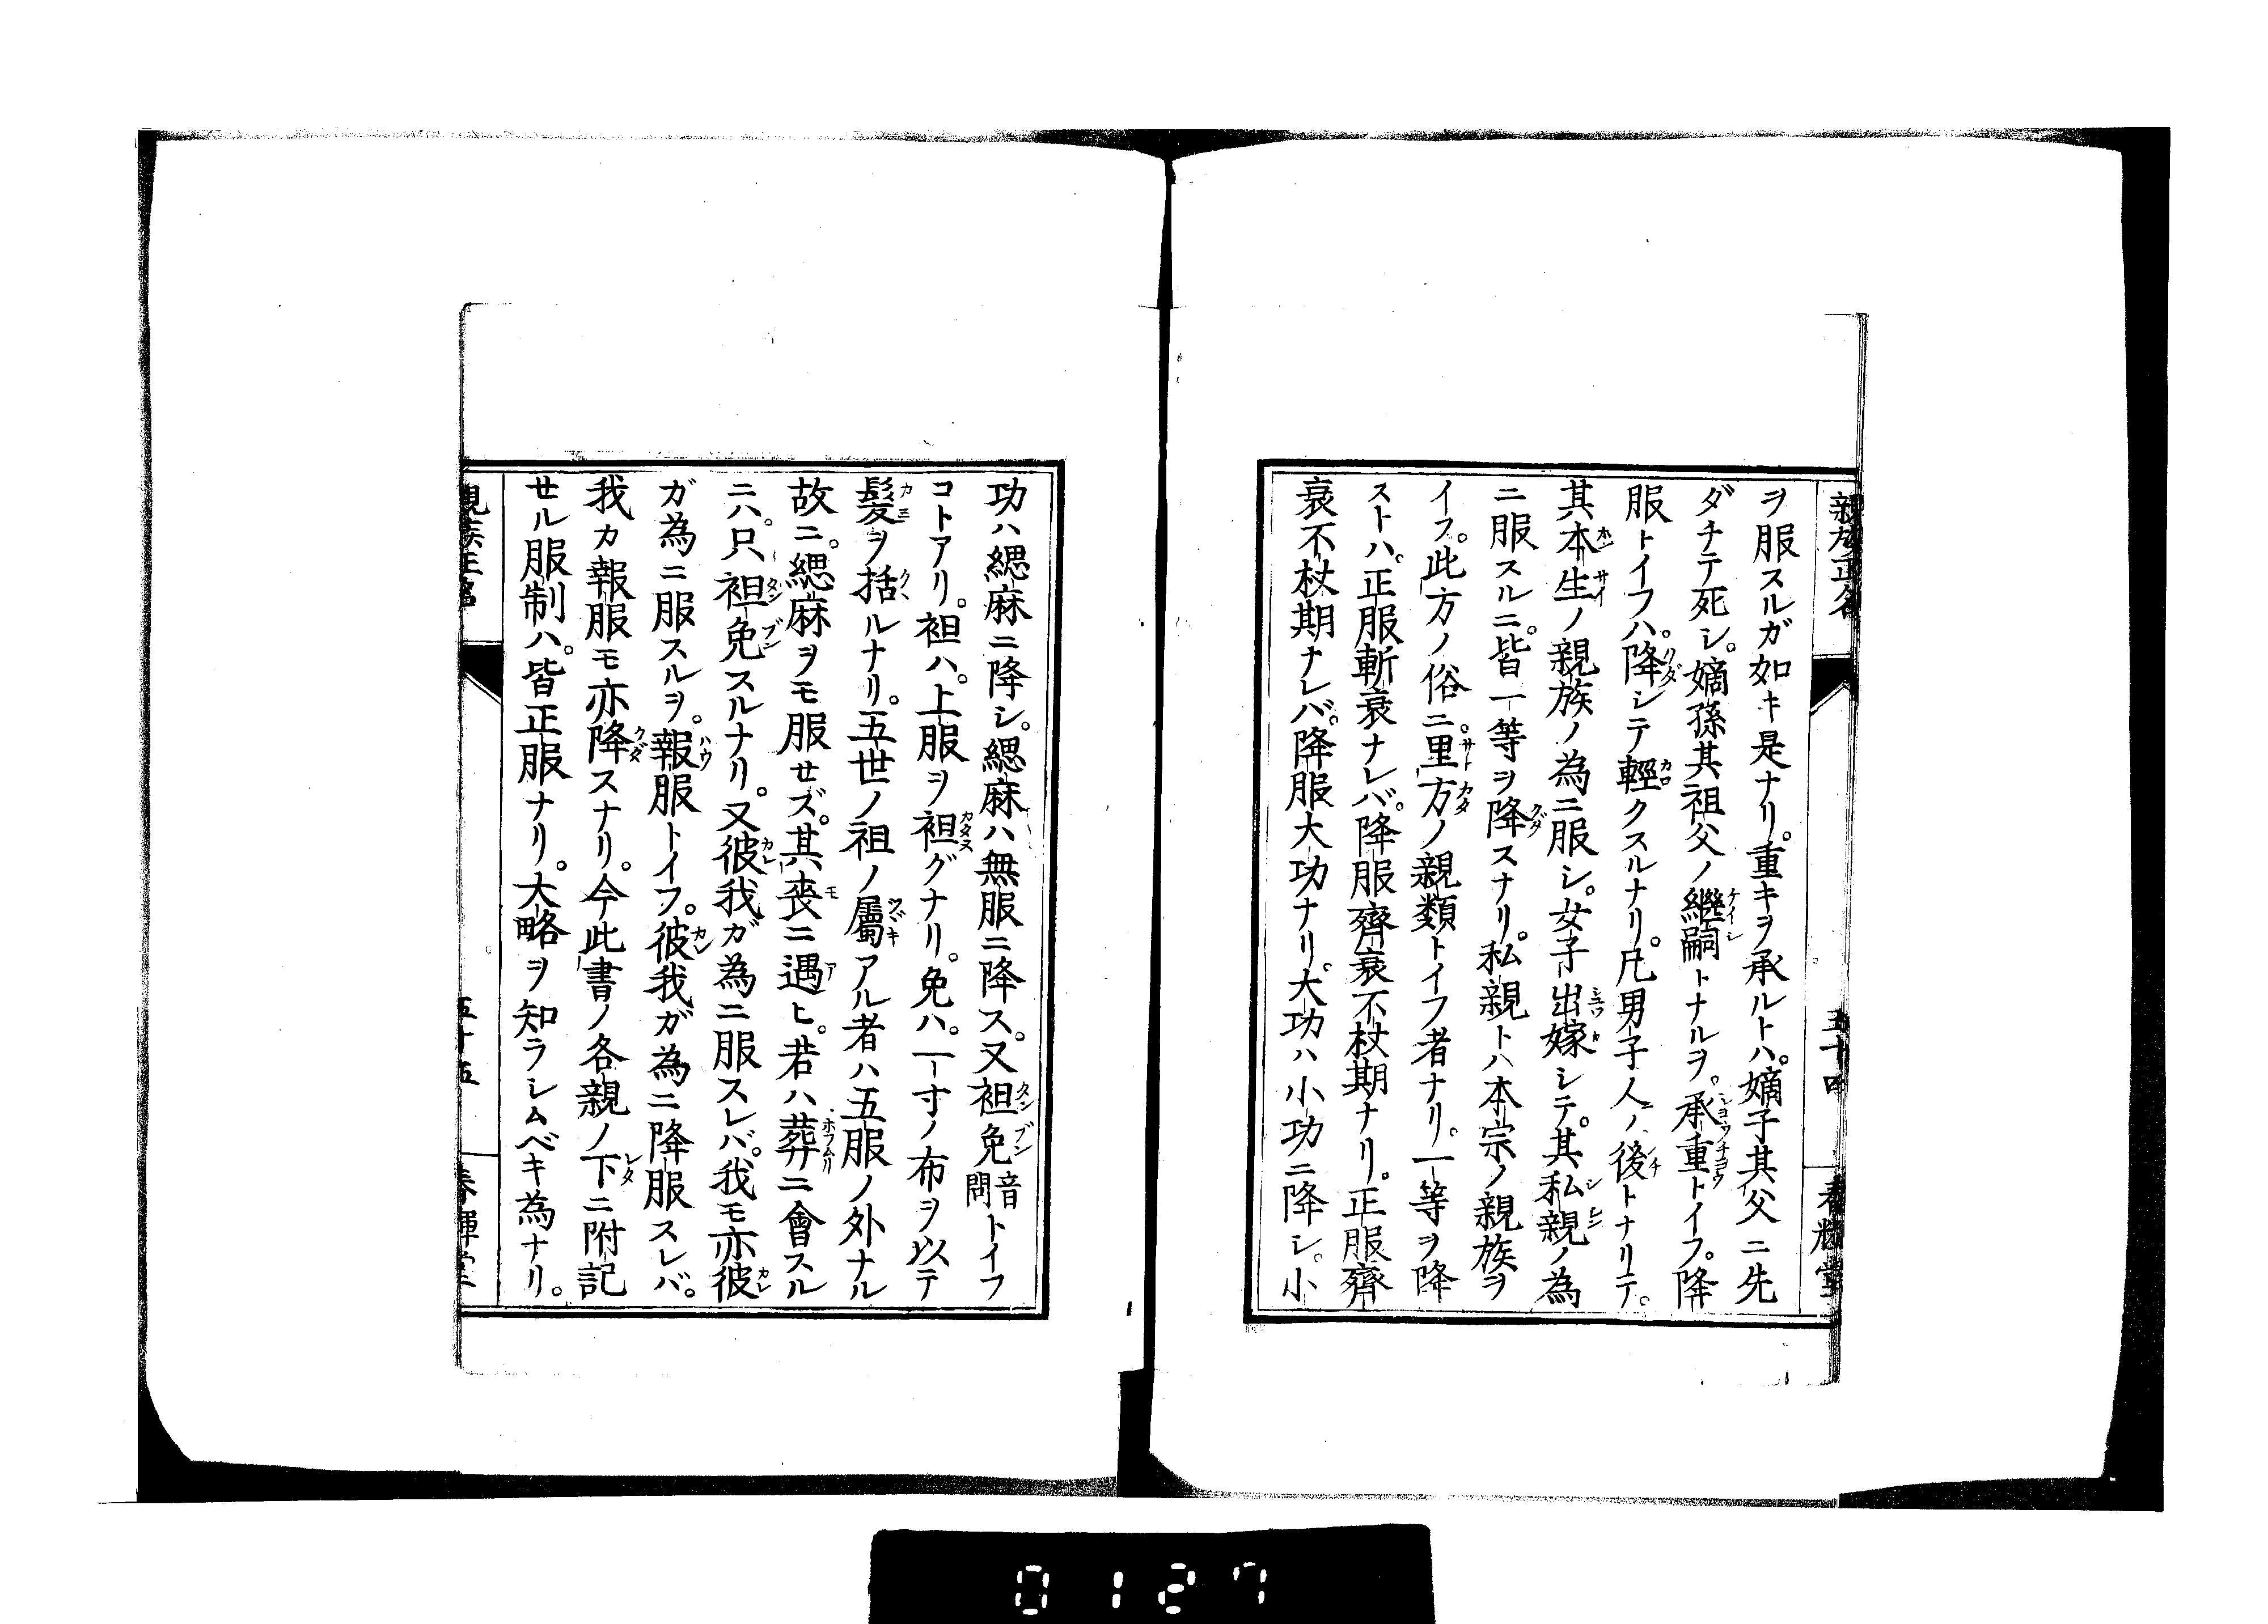 親族正名
五十四
春輝堂
ヲ服スルガ如キ是ナリ。重キヲ承ルトハ。嫡子其父ニ先
ダチテ死シ。嫡孫其祖父ノ繼嗣トナルヲ。承重トイフ。降
服トイフハ。降シテ輕クスルナリ。凡男子人ノ後トナリテ。
其本生ノ親族ノ為ニ服シ。女子出嫁シテ。其私親ノ為
ニ服スルニ。皆一等ヲ降スナリ。私親トハ本宗ノ親族ヲ
イフ。此方ノ俗ニ。里方ノ親類トイフ者ナリ。一等ヲ降
ストハ。正服斬衰ナレバ。降服齊衰不杖期ナリ。正服齊
衰不杖期ナレバ。降服大功ナリ。大功ハ小功ニ降シ。小
功ハ緦麻ニ降シ。緦麻ハ無服ニ降ス。又袒免音問トイフ
コトアリ。袒ハ。上服ヲ袒グナリ。免ハ。一寸ノ布ヲ以テ
髮ヲ括ルナリ。五世ノ祖ノ屬アル者ハ五服ノ外ナル
故ニ。緦麻ヲモ服セズ。其喪ニ遇ヒ。若ハ葬ニ會スル
ニハ。只袒免スルナリ。又彼我ガ為ニ服スレバ。我モ亦彼
ガ為ニ服スルヲ。報服トイフ。彼我ガ為ニ降服スレバ。
我カ報服モ亦降スナリ。今此書ノ各親ノ下ニ附記
セル服制ハ。皆正服ナリ。大略ヲ知ラシムベキ為ナリ。
親族正名
五十五
春輝堂
0127